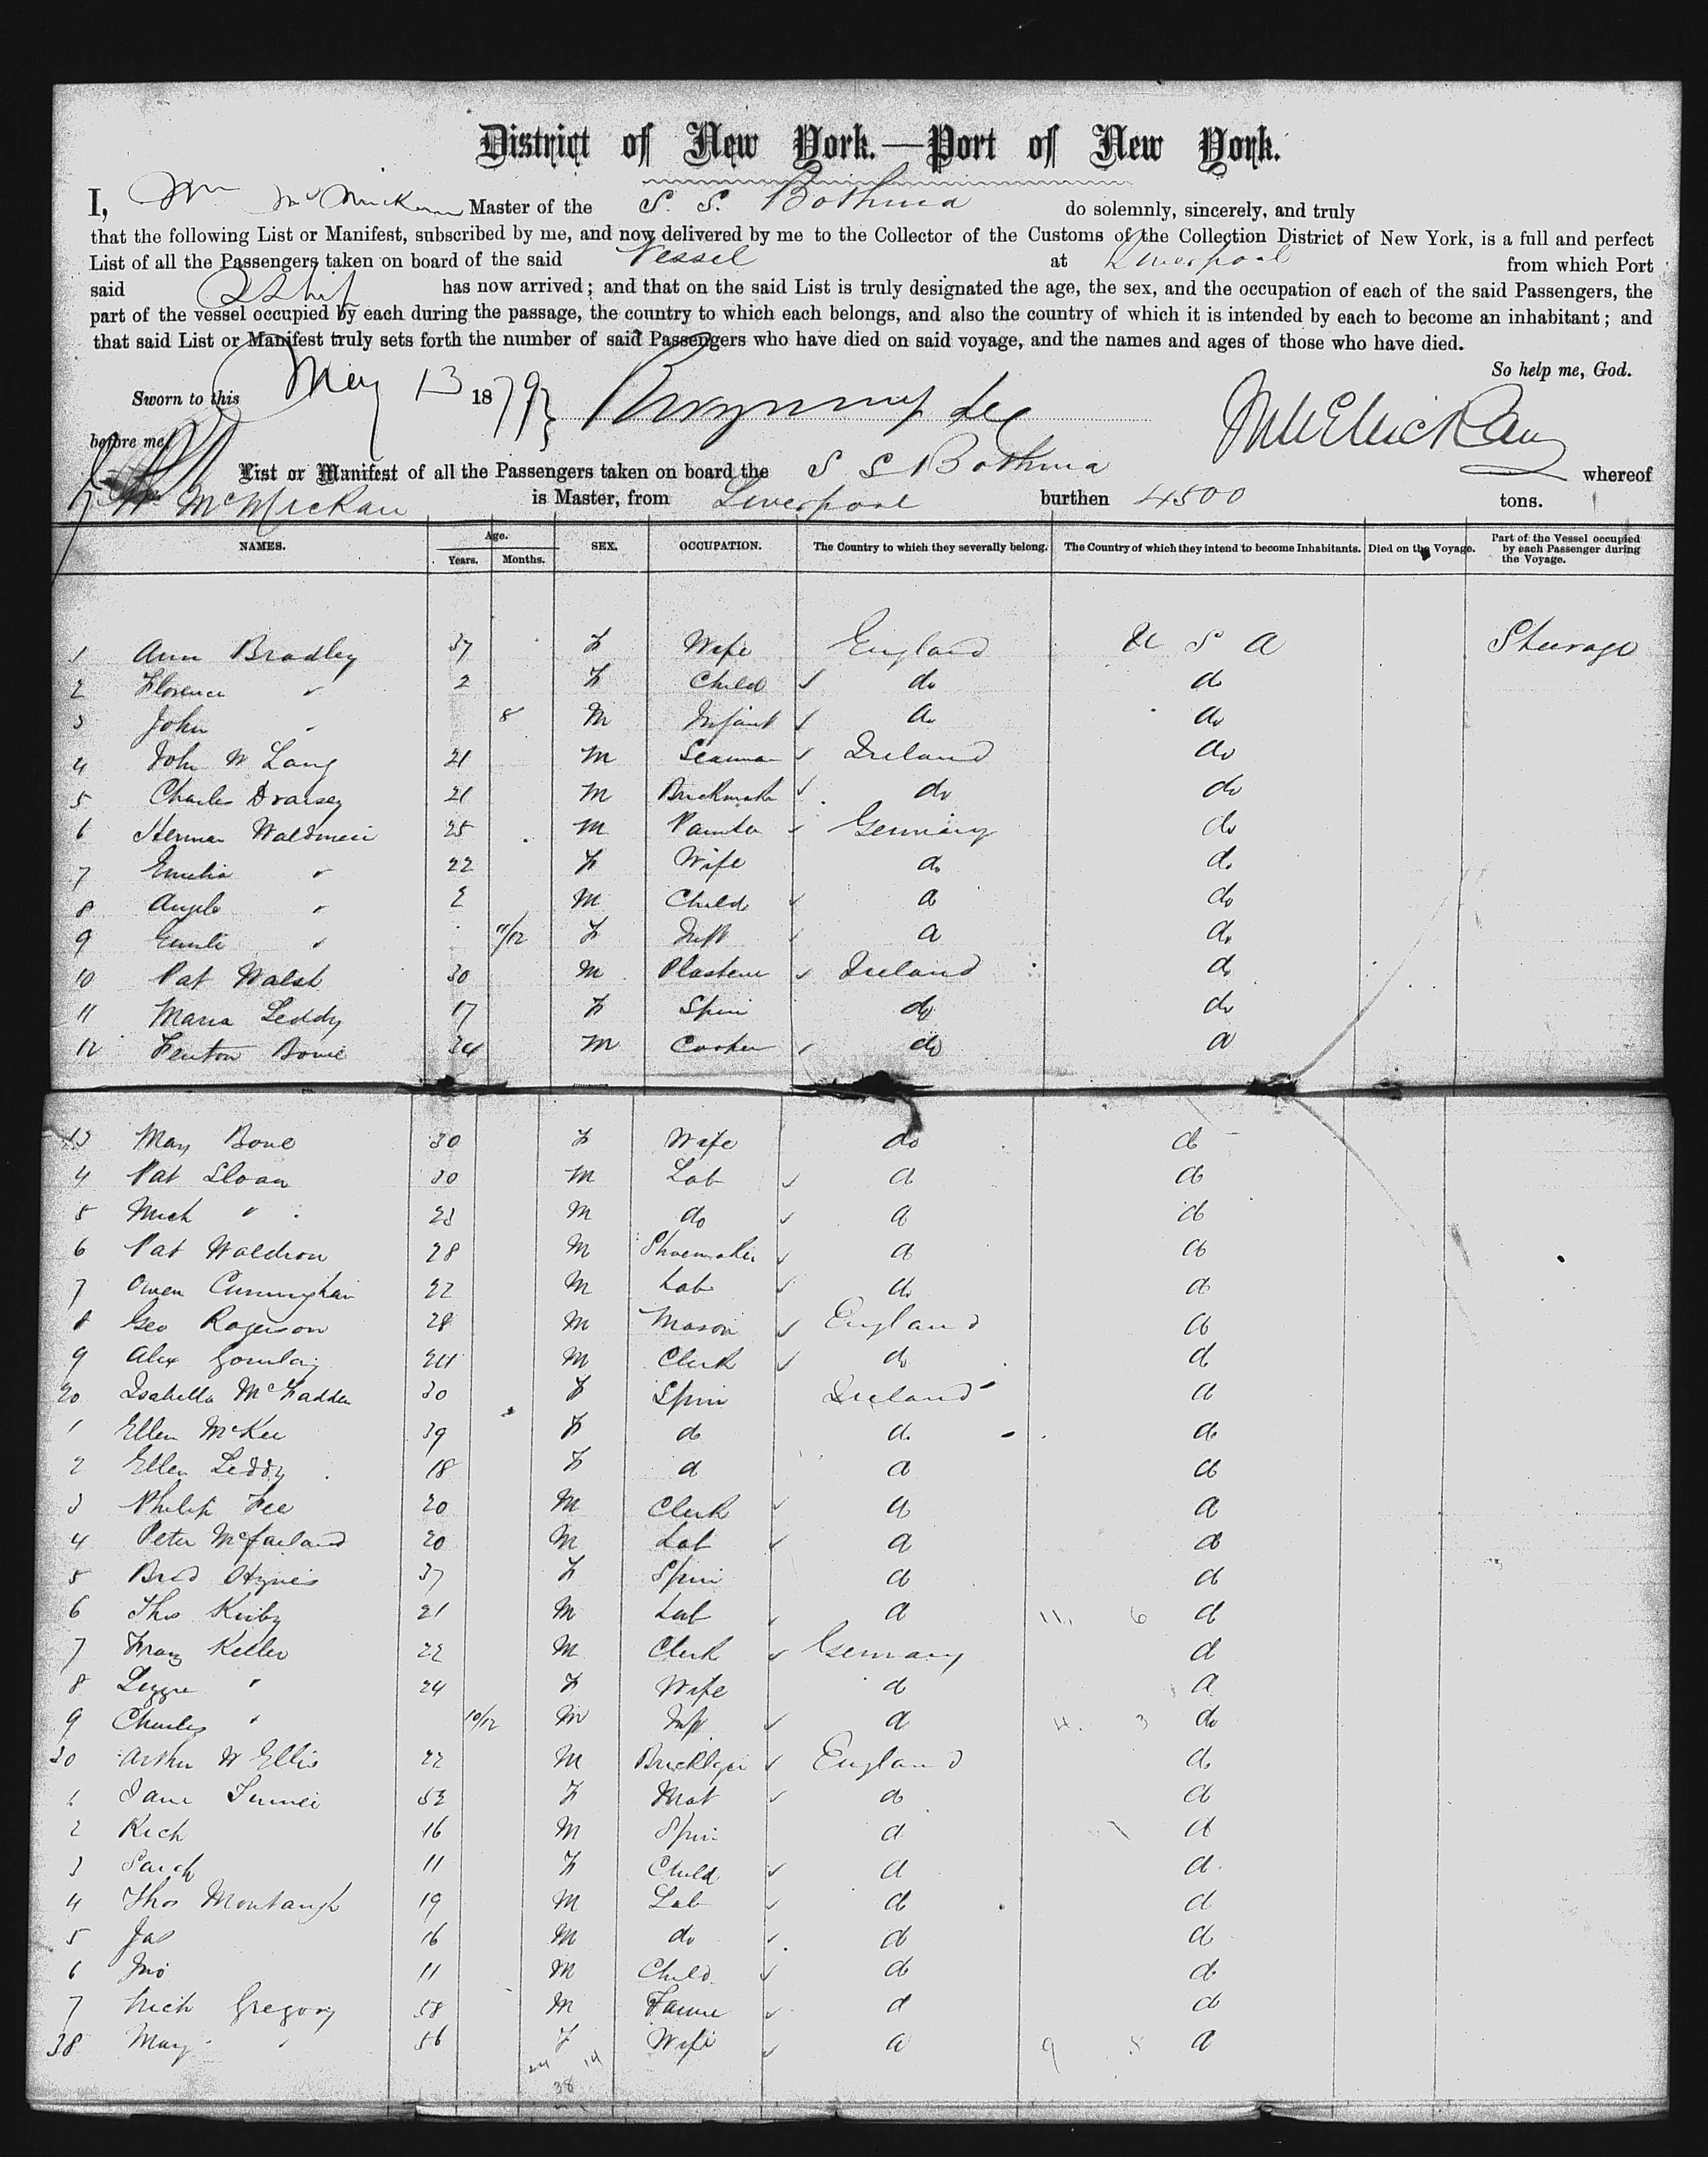 District of New York.—Port of New York.
I, Wm McMickan Master of the S. S. Bothnia do solemnly, sincerely, and truly
that the following List or Manifest, subscribed by me, and now delivered by me to the Collector of the Customs of the Collection District of New York, is a full and perfect
List of all the Passengers taken on board of the said Vessel at Liverpool from which Port
said SShip has now arrived; and that on the said List is truly designated the age, the sex, and the occupation of each of the said Passengers, the
part of the vessel occupied by each during the passage, the country to which each belongs, and also the country of which it is intended by each to become an inhabitant; and
that said List or Manifest truly sets forth the number of said Passengers who have died on said voyage, and the names and ages of those who have died.
So help me, God.
Sworn to this May 13 1879
before me, W McMickan
List or Manifest of all the Passengers taken on board the S S Bothnia whereof
W McMickan is Master, from Liverpool burthen 4500 tons.
NAMES. Age. Years. Months. SEX. OCCUPATION. The Country to which they severally belong. The Country of which they intend to become Inhabitants. Died on the Voyage. Part of the Vessel occupied by each Passenger during the Voyage.
1 Ann Bradley 37 F Wife England U S A Steerage
2 Florence " 2 F Child do do
3 John " 8 M Infant do do
4 John W Lang 21 M Seaman Ireland do
5 Charles 21 M Brickmaker do do
6 Herman 25 M Painter Germany do
7 Emelia " 22 F Wife do do
8 " 2 M Child do do
9 Emili " 11/12 F Inft do do
10 Pat Walsh 30 M Plasterer Ireland do
11 Maria Leddy 17 F Spin do do
12 Fenton Bowe 34 M do do
13 Mary Bowe 30 F Wife do do
4 Pat Sloan 30 M Lab do do
5 Mich " 23 M do do do
6 Pat Waldron 28 M Shoemaker do do
7 Owen Cunningham 22 M Lab do do
8 Geo Rogerson 28 M Mason England do
9 Alex Gourlay 24 M Clerk do do
20 Isabella McFadden 30 F Spin Ireland do
1 Ellen McKee 39 F do do do
2 Ellen Leddy 18 F do do do
3 Philip Fee 20 M Clerk do do
4 Peter McFarland 20 M Lab do do
5 Brid Hynes 37 F Spin do do
6 Thos Kirby 21 M Lab do 11. 6 do
7 Franz Keller 22 M Clerk Germany do
8 Lizzie " 24 F Wife do do
9 Charles " 10/12 M Inft do 4. 3 do
30 Arthur W Ellis 22 M Bricklayer England do
1 Jane Turner 52 F Mat do do
2 Rich 16 M Spin do do
3 Sarah 11 F Child do do
4 Thos Montaugh 19 M Lab do do
5 Jas 16 M do do do
6 Jno 11 M Child do do
7 Rich Gregory 58 M Farmer do do
38 Mary " 56 F Wife do 9 5 do
24 14
38